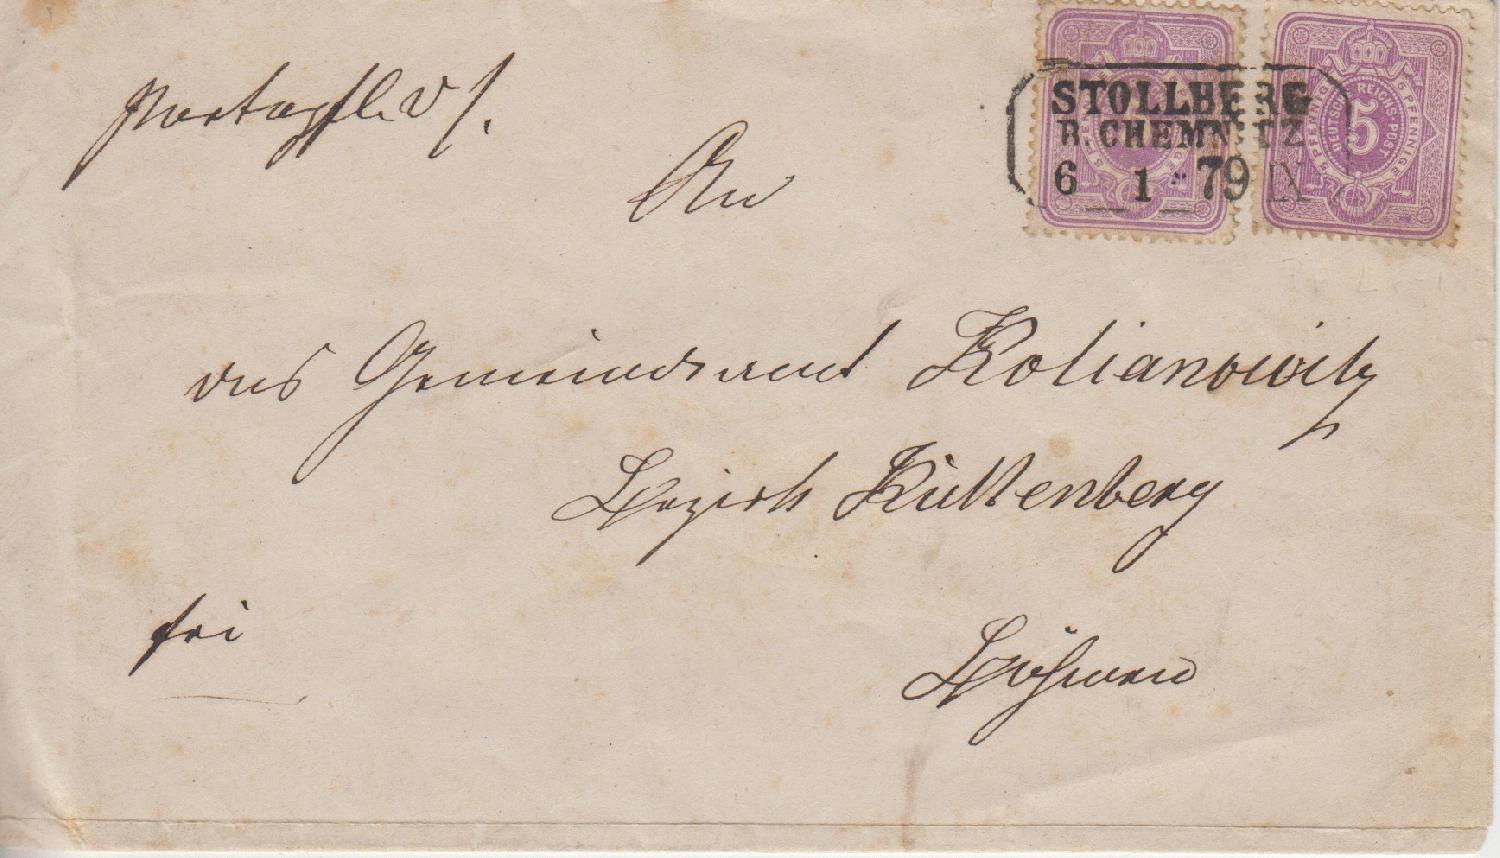 Portopfl. D S.
STOLLBERG
B. CHEMNITZ
6 1 79 IX
5 PFENNIGE
DEUTSCHE REICHS-POST
5
An
das Gemeindeamt Kolianowitz
Bezirk Kuttenberg
frei
Böhmen